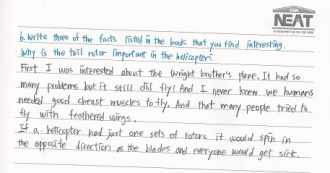 NEAT
6. Write three of the facts listed in the book that you find interesting.
Why is the tail rotor important in the helicopter?
First I was interested about the wright brother's plane. It had so
many problems but it still did fly! And I never knew we humans
needed good cheast muscles to fly. And that many people tried to
fly with feathered wings.
If a helicopter had just one sets of rotors it would spin in
the opposite direction as the blades and everyone would get sick.